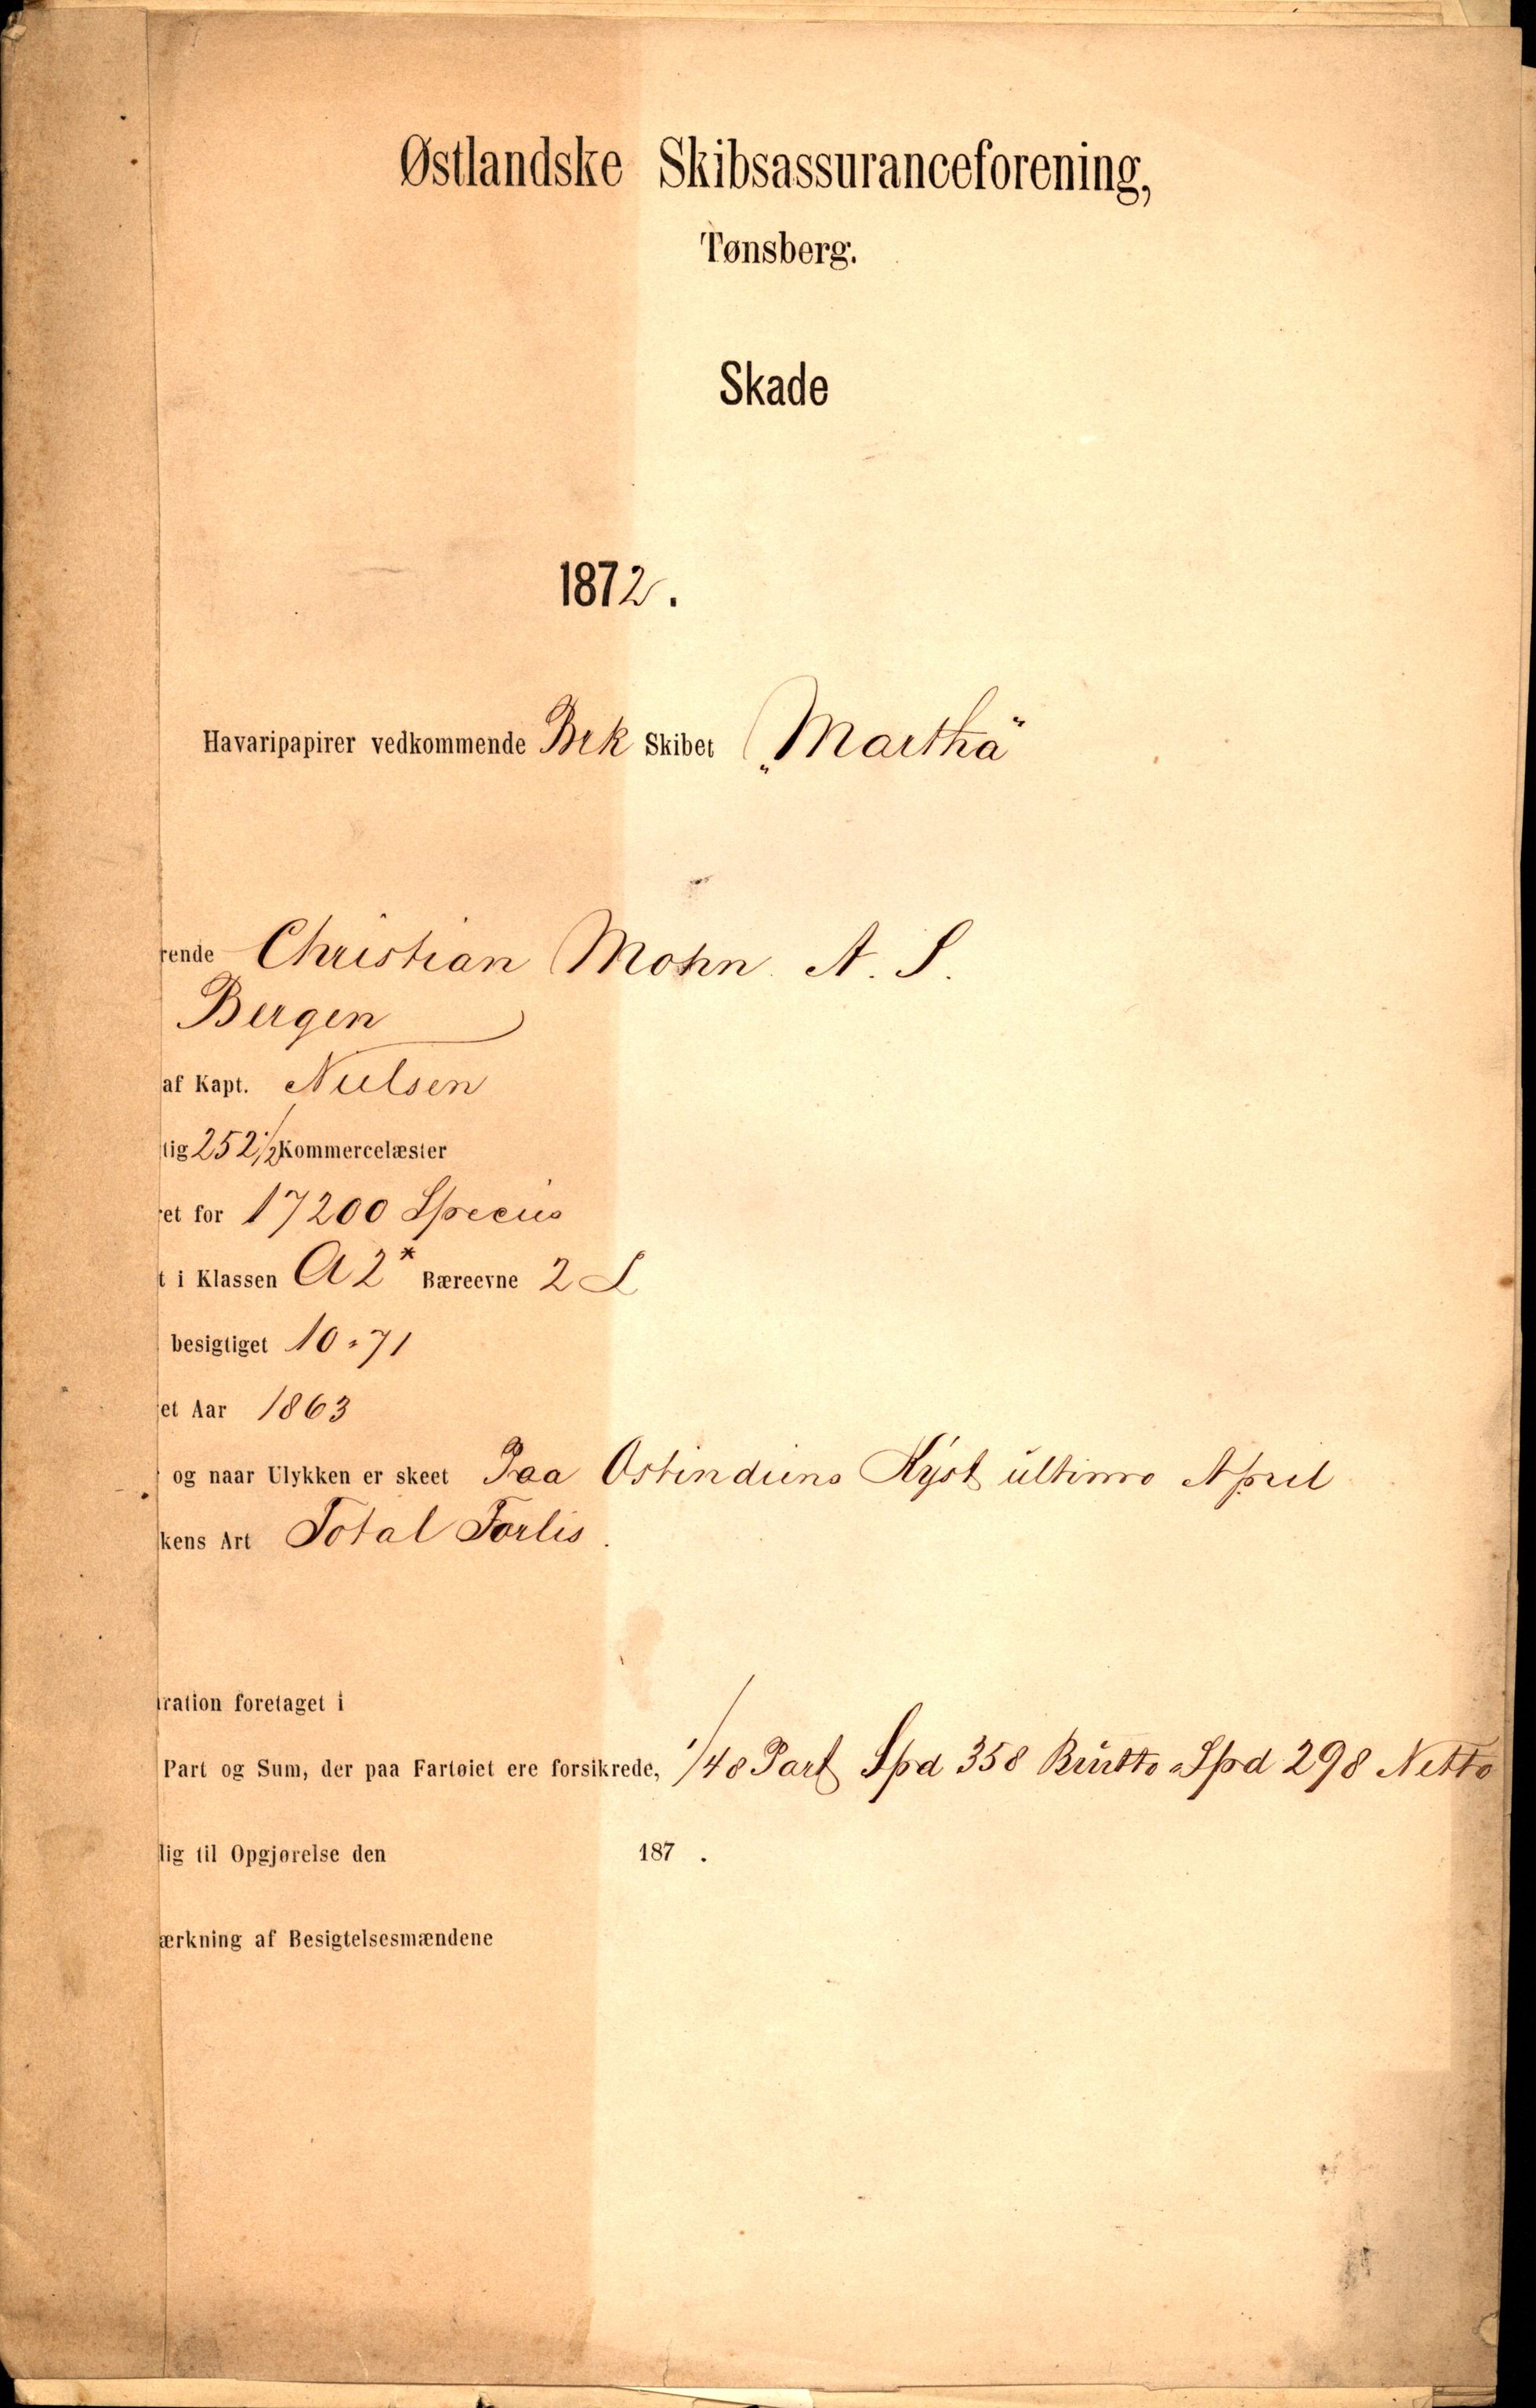 Østlandske Skibsassuranceforening,
Tønsberg.
Skade
1872.
Havaripapirer vedkommende Brk Skibet „Martha"
rende Christian Mohn A. S.
Bergen
af Kapt. Nielsen
tig 252 1/2 Kommercelæster
et for 17200 Species
t i Klassen A2* Bæreevne 2 L
besigtiget 10-71
et Aar 1863
og naar Ulykken er skeet Paa Ostindiens Kyst ultimo April
kens Art Total Forlis.
ration foretaget i
Part og Sum, der paa Fartøiet ere forsikrede, 1/48 Part Spd 358 Brutto Spd 298 Netto
lig til Opgjørelse den 187 .
ærkning af Besigtelsesmændene